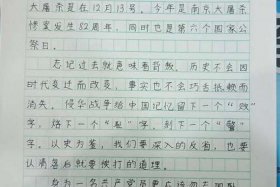 大屠杀是在12月13号。今年是南京大屠杀
惨案发生82周年，同时也是第六个国家公
祭日。
忘记过去就意味着背叛。历史不会因
时代变迁而改变，事实也不会巧舌抵赖而
消失。侵华战争给中国记忆留下一个“败”
字，烙下一个“耻”字，刻下一个“警”
字。以史为鉴，我们要深入的反省，也要
认清落后就要挨打的道理。
身为一名共产党员